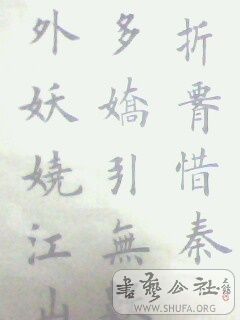 外妖嬈江山
多嬌引無
折腰惜秦
書藝公社
WWW.SHUFA.ORG